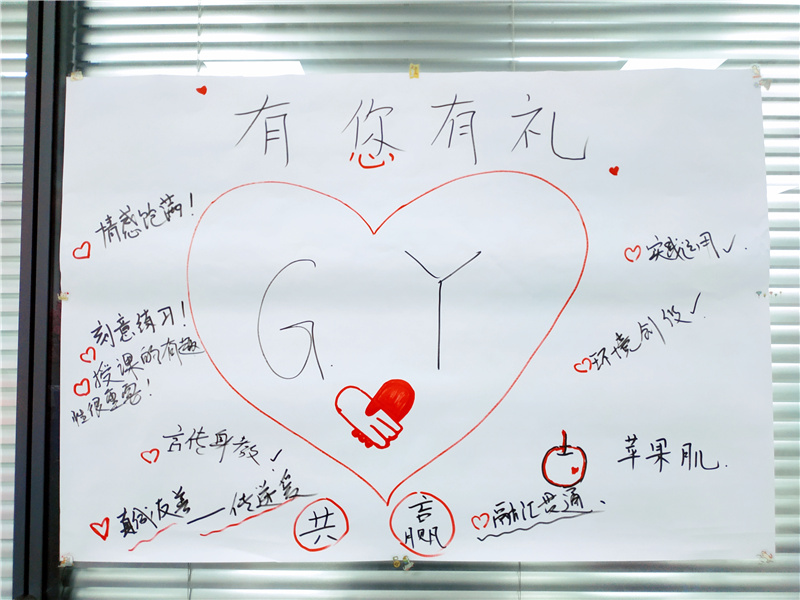 有您有礼
情感饱满！
G Y
实践运用✓.
刻意练习！
环境创设✓
授课的有趣
性很重要！
言传身教✓
苹果肌.
真诚友善——传递爱
共赢
融汇贯通.